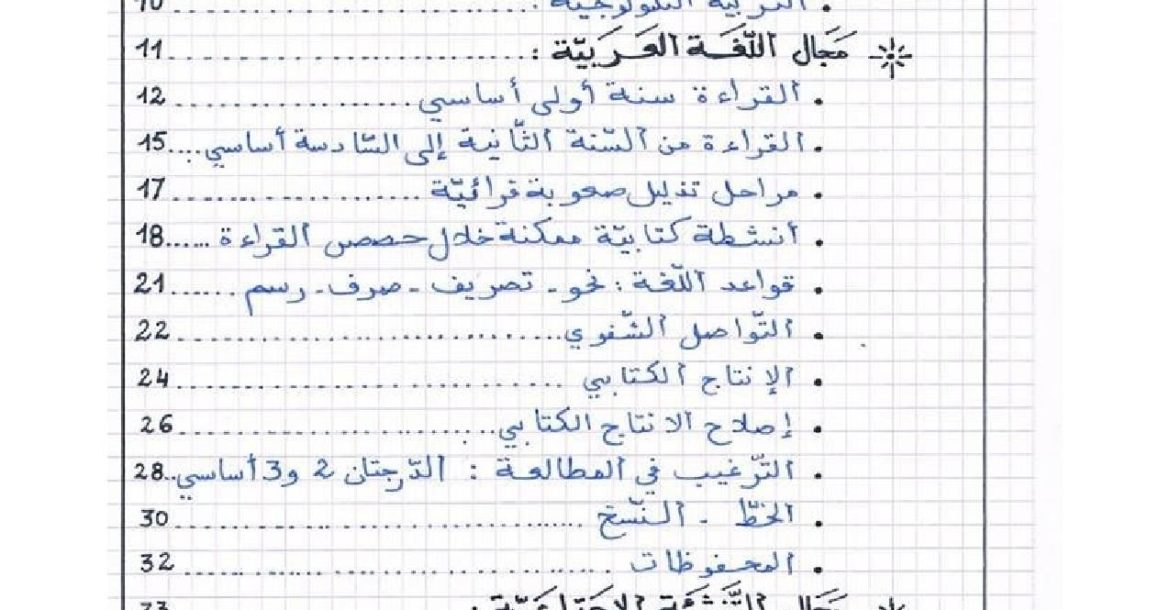 . التربية التكنولوجية: .......................... 10
✳ مَجَال اللّغَة العَرَبيّة : .......................... 11
. القراءة سنة أولى أساسي .......................... 12
. القراءة من السّنة الثّانية إلى السّادسة أساسي .... 15
. مراحل تذليل صعوبة قرائيّة .......................... 17
. أنشطة كتابيّة ممكنة خلال حصص القراءة ...... 18
. قواعد اللّغة : نحو - تصريف - صرف - رسم ....... 21
. التّواصل الشّفوي .......................... 22
. الإنتاج الكتابي .......................... 24
. إصلاح الانتاج الكتابي .......................... 26
. التّرغيب في المطالعة : الدّرجتان 2 و 3 أساسي .. 28
. الخطّ - النّسخ .......................... 30
. المحفوظات .......................... 32
✳ مَجَال التَّنْشِئَة الاِجْتِمَاعِيَّة : 33